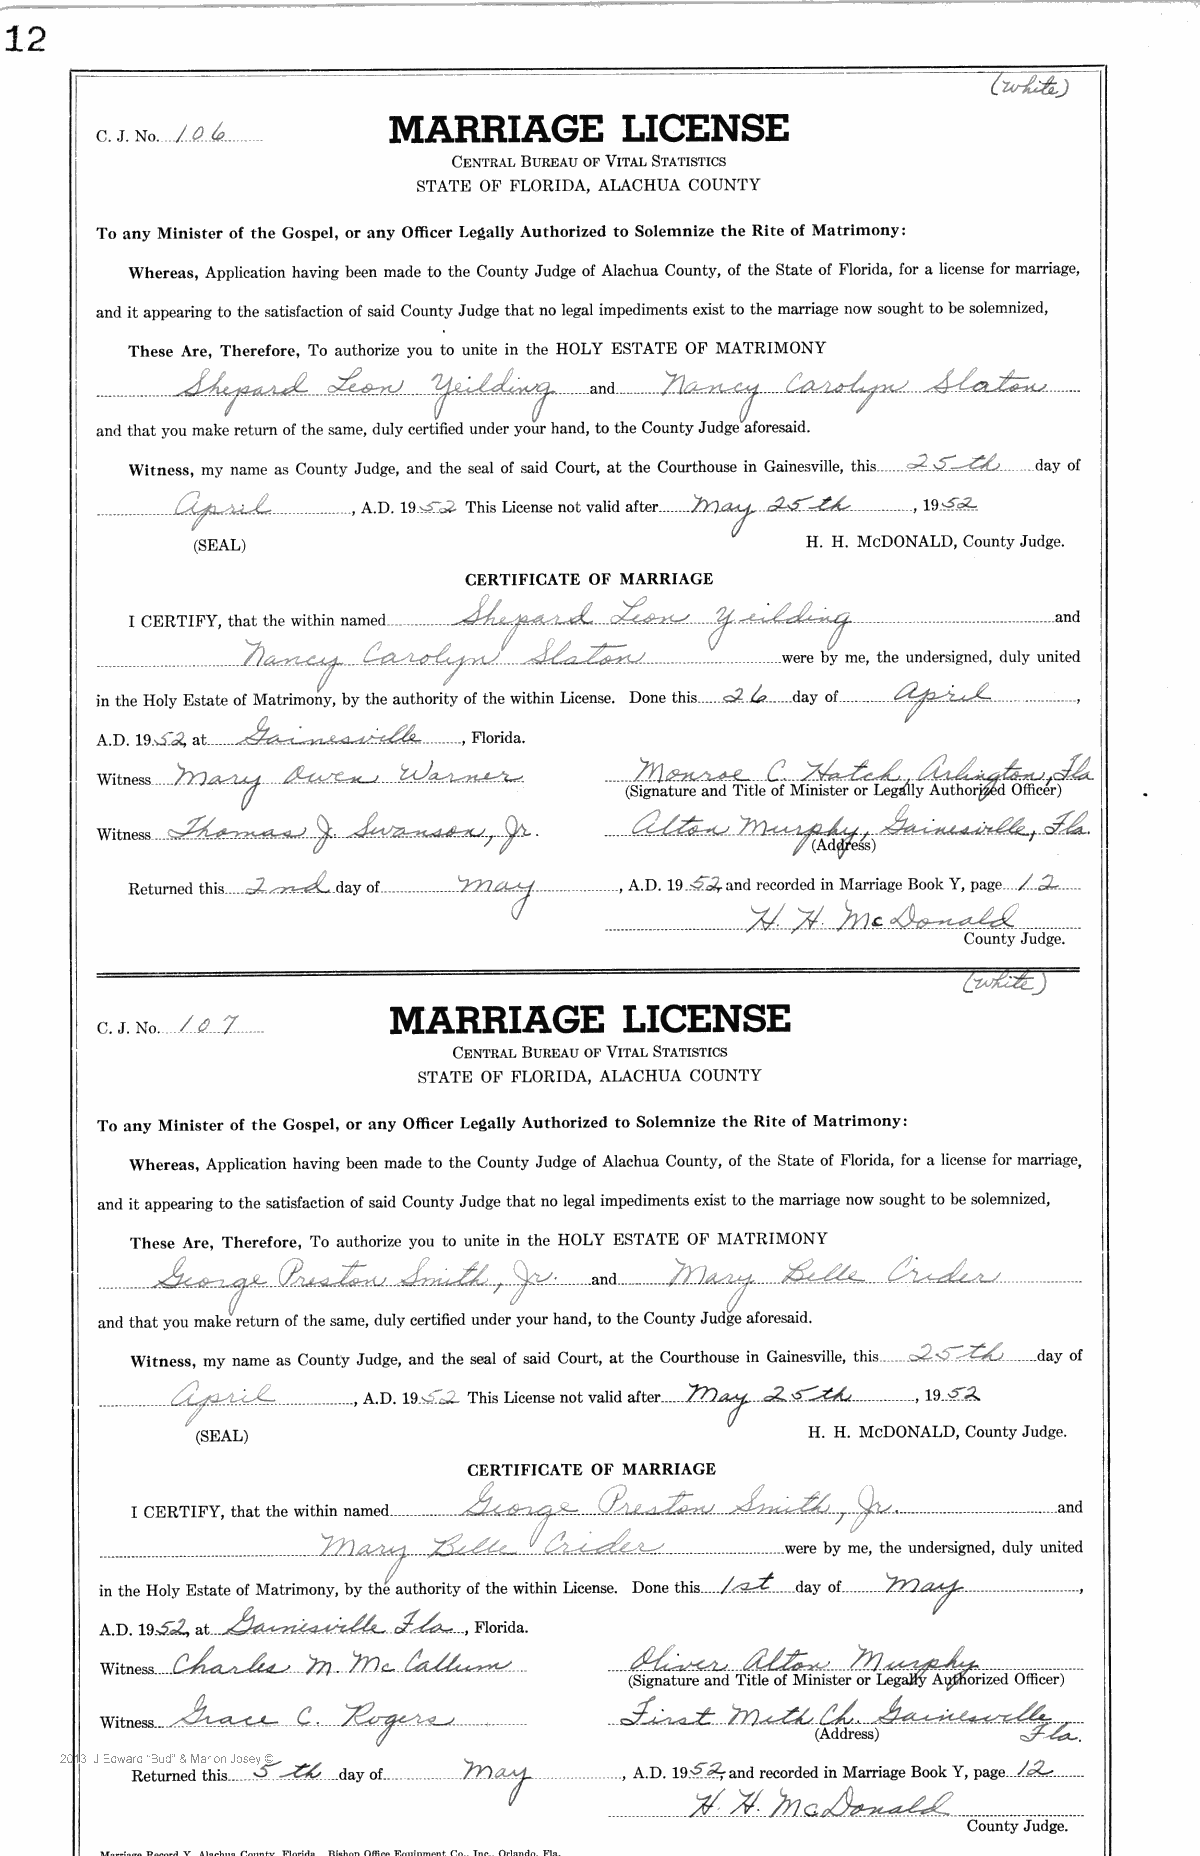 12
(white)
C. J. No. 106
MARRIAGE LICENSE
CENTRAL BUREAU OF VITAL STATISTICS
STATE OF FLORIDA, ALACHUA COUNTY
To any Minister of the Gospel, or any Officer Legally Authorized to Solemnize the Rite of Matrimony:
Whereas, Application having been made to the County Judge of Alachua County, of the State of Florida, for a license for marriage,
and it appearing to the satisfaction of said County Judge that no legal impediments exist to the marriage now sought to be solemnized,
These Are, Therefore, To authorize you to unite in the HOLY ESTATE OF MATRIMONY
Shepard Leon Yeilding and Nancy Carolyn Slaton
and that you make return of the same, duly certified under your hand, to the County Judge aforesaid.
Witness, my name as County Judge, and the seal of said Court, at the Courthouse in Gainesville, this 25th day of
April, A.D. 1952 This License not valid after May 25th, 1952
(SEAL) H. H. McDONALD, County Judge.
CERTIFICATE OF MARRIAGE
I CERTIFY, that the within named Shepard Leon Yeilding and
Nancy Carolyn Slaton were by me, the undersigned, duly united
in the Holy Estate of Matrimony, by the authority of the within License. Done this 26 day of April,
A.D. 1952, at Gainesville, Florida.
Witness Mary Owen Warner Monroe C. Hatch, Arlington, Fla
(Signature and Title of Minister or Legally Authorized Officer)
Witness Thomas J. Swanson, Jr. Alton Murphy, Gainesville, Fla.
(Address)
Returned this 2nd day of May, A.D. 1952, and recorded in Marriage Book Y, page 12
H. H. McDonald
County Judge.
(white)
C. J. No. 107
MARRIAGE LICENSE
CENTRAL BUREAU OF VITAL STATISTICS
STATE OF FLORIDA, ALACHUA COUNTY
To any Minister of the Gospel, or any Officer Legally Authorized to Solemnize the Rite of Matrimony:
Whereas, Application having been made to the County Judge of Alachua County, of the State of Florida, for a license for marriage,
and it appearing to the satisfaction of said County Judge that no legal impediments exist to the marriage now sought to be solemnized,
These Are, Therefore, To authorize you to unite in the HOLY ESTATE OF MATRIMONY
George Preston Smith, Jr. and Mary Belle Crider
and that you make return of the same, duly certified under your hand, to the County Judge aforesaid.
Witness, my name as County Judge, and the seal of said Court, at the Courthouse in Gainesville, this 25th day of
April, A.D. 1952 This License not valid after May 25th, 1952
(SEAL) H. H. McDONALD, County Judge.
CERTIFICATE OF MARRIAGE
I CERTIFY, that the within named George Preston Smith, Jr. and
Mary Belle Crider were by me, the undersigned, duly united
in the Holy Estate of Matrimony, by the authority of the within License. Done this 1st day of May,
A.D. 1952, at Gainesville Fla, Florida.
Witness Charles M. McCallum Oliver Alton Murphy
(Signature and Title of Minister or Legally Authorized Officer)
Witness Grace C. Rogers First Meth Ch. Gainesville
(Address) Fla.
2013 J Edward "Bud" & Marion Josey ©
Returned this 5th day of May, A.D. 1952, and recorded in Marriage Book Y, page 12
H. H. McDonald
County Judge.
Marriage Record Y, Alachua County, Florida. Bishop Office Equipment Co., Inc., Orlando, Fla.